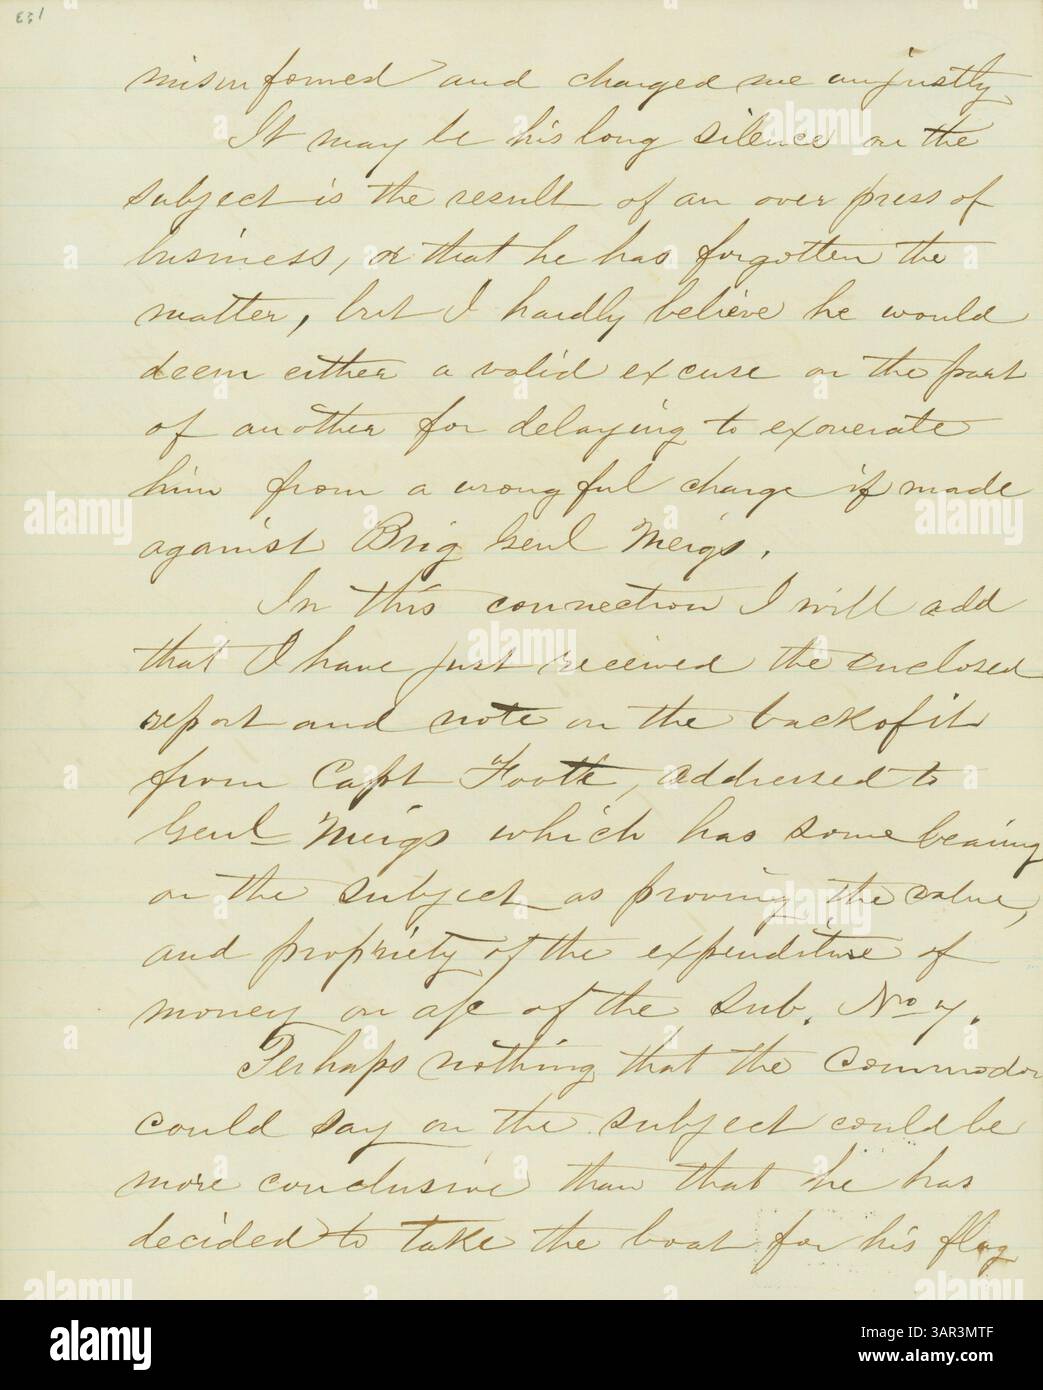 133
misinformed and charged me unjustly
It may be his long silence on the
subject is the result of an over press of
business, or that he has forgotten the
matter, but I hardly believe he would
deem either a valid excuse on the part
of another for delaying to exonerate
him from a wrongful charge if made
against Brig Genl Meigs.
In this connection I will add
that I have just received the enclosed
report and note on the back of it
from Capt Foote, addressed to
Genl Meigs which has some bearing
on the subject as proving the value,
and propriety of the expenditure of
money on a/c of the Sub. No 7.
Perhaps nothing that the Commodore
could say on the subject could be
more conclusive than that he has
decided to take the boat for his flag
alamy
Image ID: 2AR3MTF
www.alamy.com